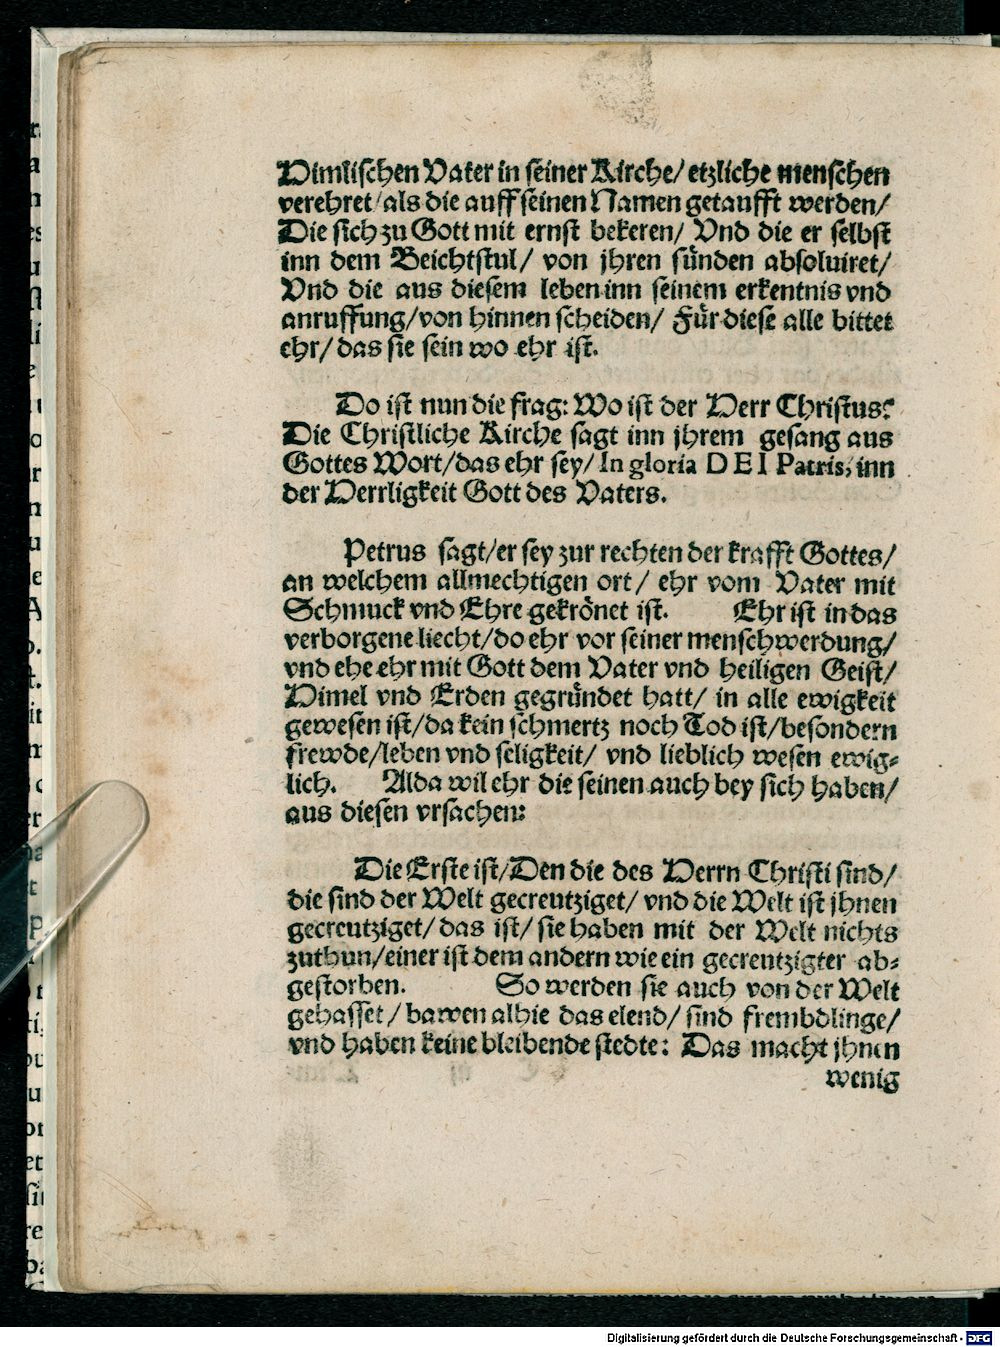 Himlischen Vater in seiner Kirche/ etzliche menschen
verehret/als die auff seinen Namen getaufft werden/
Die sich zu Gott mit ernst bekeren/ Vnd die er selbst
inn dem Beichtstul/ von jhren sünden absoluiret/
Vnd die aus diesem leben inn seinem erkentnis vnd
anruffung/von hinnen scheiden/ Für diese alle bittet
ehr/ das sie sein wo ehr ist.
Do ist nun die frag: Wo ist der Herr Christus?
Die Christliche Kirche sagt inn jhrem gesang aus
Gottes Wort/das ehr sey/ In gloria DEI Patris, inn
der Herrligkeit Gott des Vaters.
Petrus sagt/er sey zur rechten der krafft Gottes/
an welchem allmechtigen ort/ ehr vom Vater mit
Schmuck vnd Ehre gekrönet ist. Ehr ist in das
verborgene liecht/do ehr vor seiner menschwerdung/
vnd ehe ehr mit Gott dem Vater vnd heiligen Geist/
Himel vnd Erden gegründet hatt/ in alle ewigkeit
gewesen ist/da kein schmertz noch Tod ist/besondern
frewde/leben vnd seligkeit/ vnd lieblich wesen ewig-
lich. Alda wil ehr die seinen auch bey sich haben/
aus diesen vrsachen:
Die Erste ist/Den die des Herrn Christi sind/
die sind der Welt gecreutziget/ vnd die Welt ist jhnen
gecreutziget/das ist/ sie haben mit der Welt nichts
zuthun/einer ist dem andern wie ein gecreutzigter ab-
gestorben. So werden sie auch von der Welt
gehasset/ bawen alhie das elend/ sind frembdlinge/
vnd haben keine bleibende stedte: Das macht jhnen
wenig
Digitalisierung gefördert durch die Deutsche Forschungsgemeinschaft - DFG